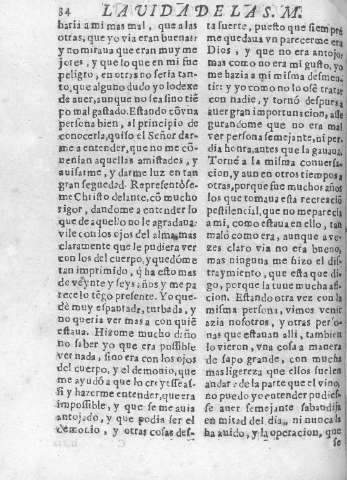 84 LA VIDA DE LA S. M.
haria a mi mas mal, que a las
otras, que yo via eran buenas;
y no miraua que eran muy me
jores, y que lo que en mi fue
peligro, en otras no seria tan-
to, que alguno dudo yo lo dexe
de auer, aunque no sea sino tiē
po mal gastado. Estando cō vna
persona bien, al principio de
conocerla, quiso el Señor dar-
me a entender, que no me cō-
uenian aquellas amistades, y
auisarme, y darme luz en tan
gran seguedad. Representòse-
me Christo delante, cō mucho
rigor, dandome a entender lo
que de aquello no le agradaua:
vile con los ojos del alma, mas
claramente que le pudiera ver
con los del cuerpo, y quedòme
tan imprimido, q̃ ha esto mas
de veynte y seys años, y me pa
rece lo tēgo presente. Yo que-
dè muy espantada, turbada, y
no queria ver mas a con quiē
estaua. Hizome mucho daño
no saber yo que era possible
ver nada, sino era con los ojos
del cuerpo, y el demonio, que
me ayudò a que lo creyesse as-
si, y hazerme entender, que era
impossible, y que se me auia
antojado, y que podia ser el
demonio, y otras cosas des-
ta suerte, puesto que siempre
me quedaua vn parecerme era
Dios, y que no era antojo:
mas como no era mi gusto, yo
me hazia a mi misma desmen-
tir: y yo como no lo osè tratar
con nadie, y tornò despues a
auer gran importunacion, asse
gurandome que no era mal
ver persona semejante, ni per-
dia honra, antes que la ganaua.
Tornè a la misma conuersa-
cion, y aun en otros tiempos a
otras, porque fue muchos años
los que tomaua esta recreaciō
pestilencial, que no me parecia
a mi, como estaua en ello, tan
malo como era, aunque a ve-
zes claro via no era bueno,
mas ninguna me hizo el dis-
traymiento, que esta que di-
go, porque la tuue mucha afi-
cion. Estando otra vez con la
misma persona, vimos venir
azia nosotros, y otras perso-
nas que estauan alli, tambien
lo vieron, vna cosa a manera
de sapo grande, con mucha
mas ligereza que ellos suelen
andar: de la parte que el vino,
no puedo yo entender pudies-
se auer semejante sabandija
en mitad del dia, ni nunca la
ha auido, y la operacion, que
se